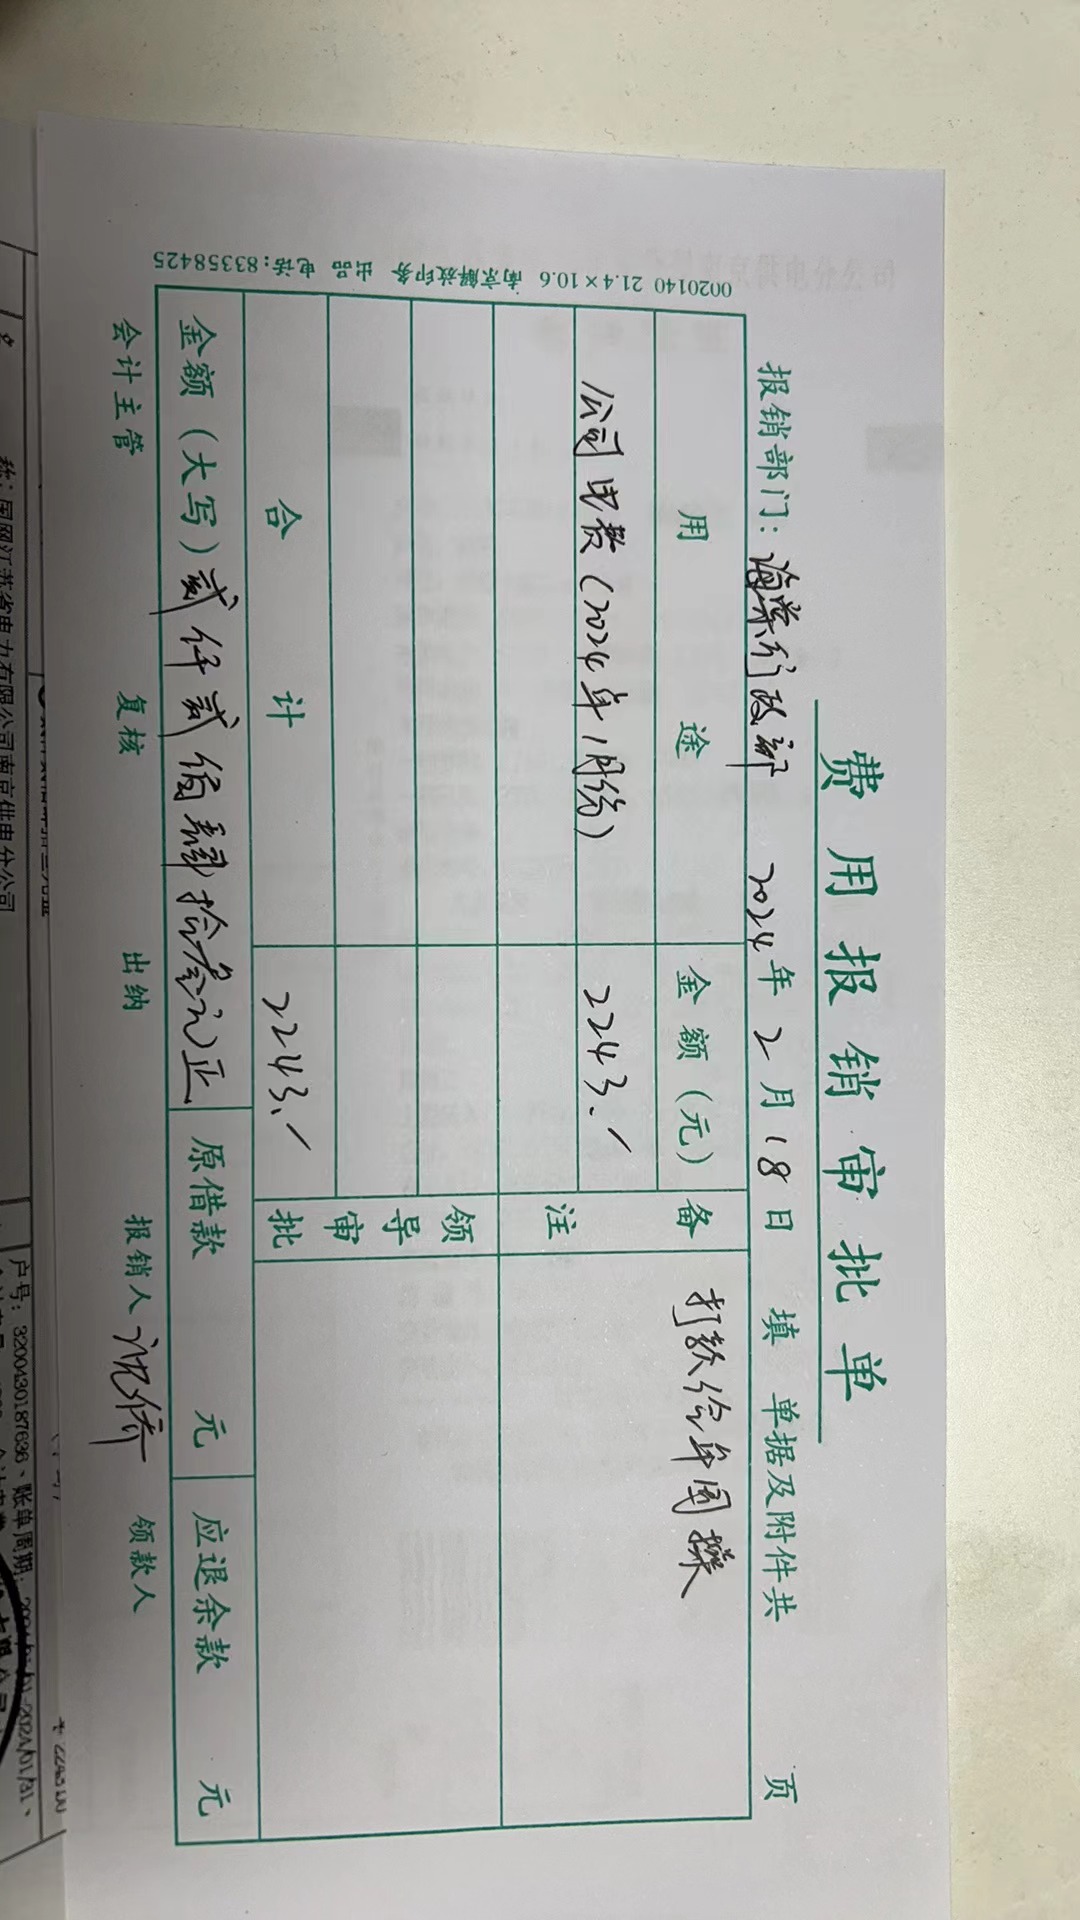 费用报销审批单
报销部门：海棠行政部 2024年2月18日填 单据及附件共 页
用途 金额（元） 备注
公司电费（2024年1月份） 2243.
打款给年国操
领导审批
合计 2243.
金额（大写）贰仟贰佰肆拾叁元正 原借款 元 应退余款 元
会计主管 复核 出纳 报销人 沈侨 领款人
0020140 21.4×10.6 南京解放印务 出品 电话：83358425
称：国网江苏省电力有限公司南京供电分公司
户号：3200430187636、账单周期：2024/01/01-2024/01/31、